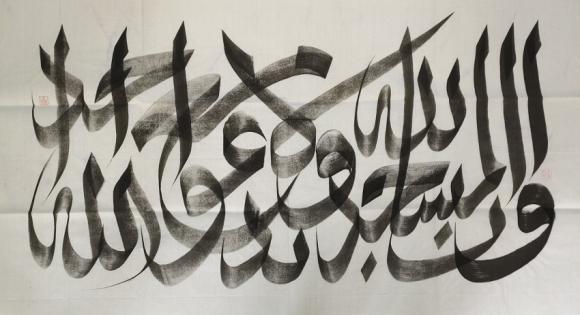 وان المسجد لله فلا تدعوا مع الله احدا